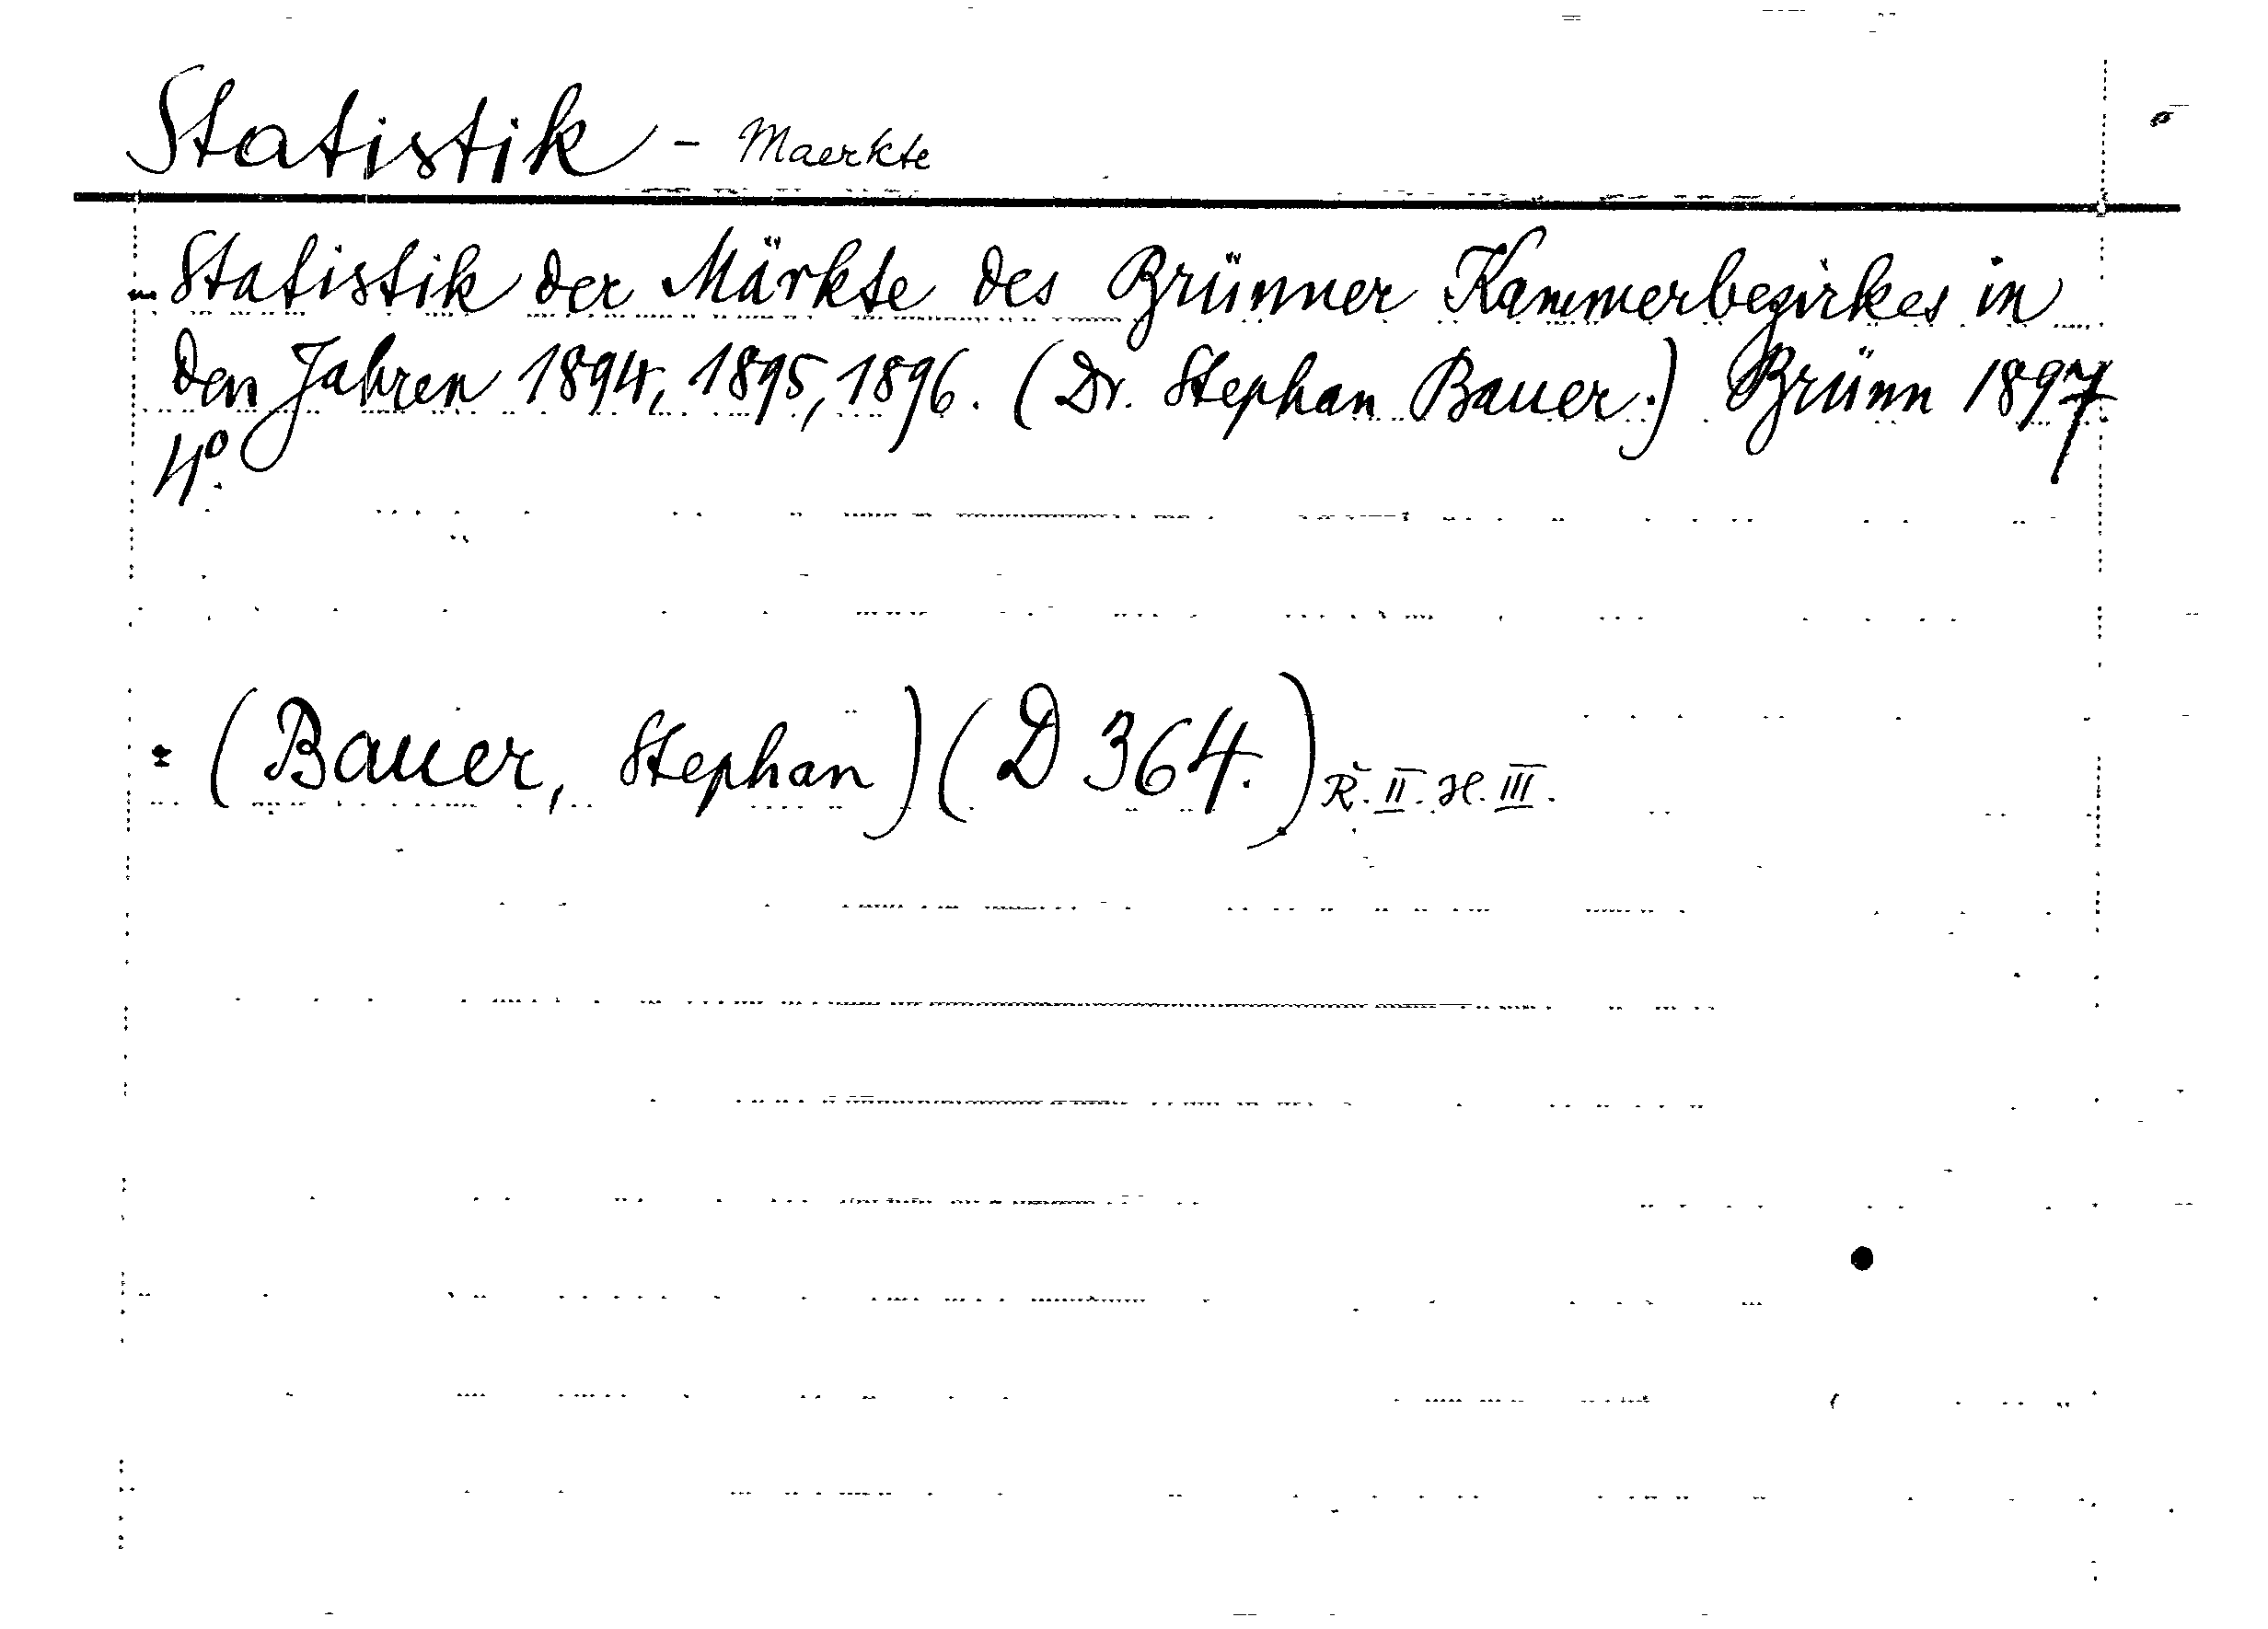 Statistik - Maerkte
Statistik der Märkte des Brünner Kammerbezirkes in
den Jahren 1894, 1895, 1896. (Dr. Stephan Bauer.) Brünn 1897
4º.
(Bauer, Stephan) (D 364.) Ř. II. H. III.